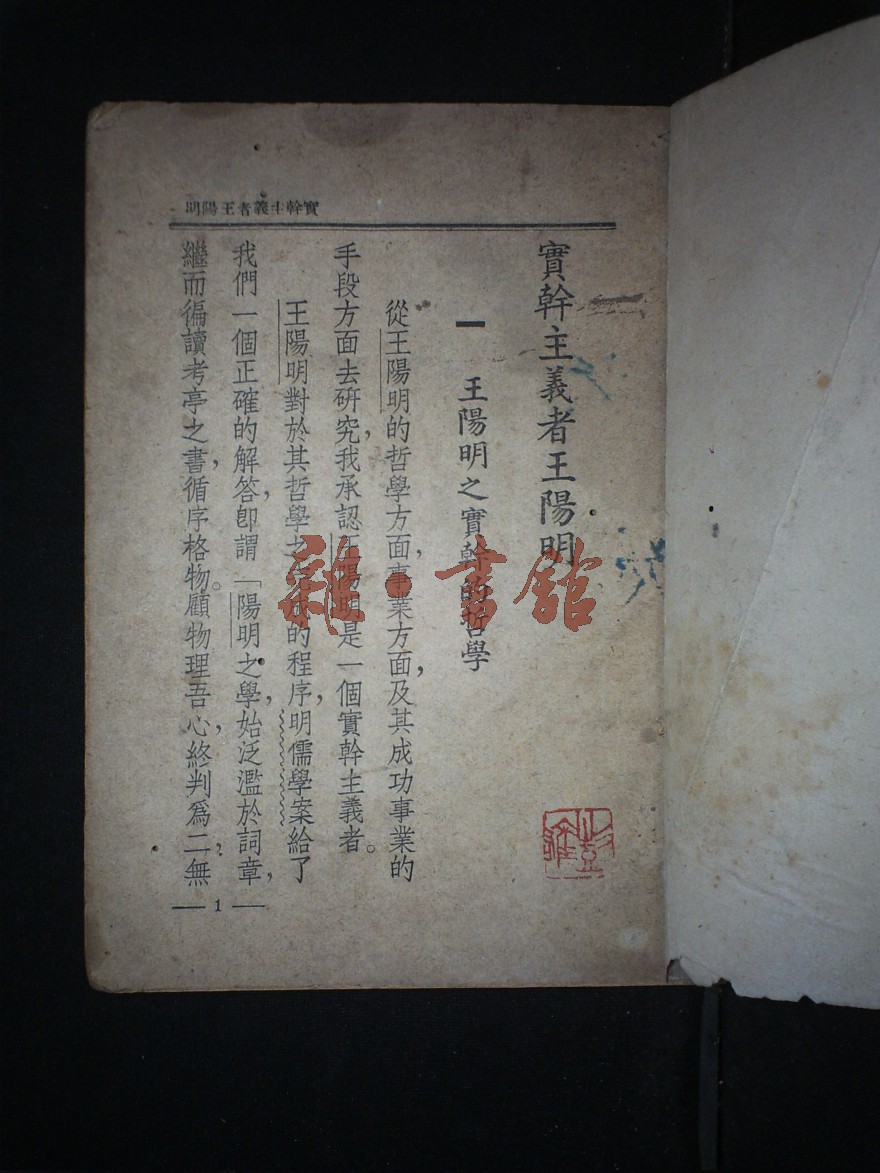 實幹主義者王陽明
實幹主義者王陽明
一 王陽明之實幹的哲學
從王陽明的哲學方面,事業方面,及其成功事業的
手段方面去研究,我承認王陽明是一個實幹主義者。
王陽明對於其哲學之成的程序,明儒學案給了
我們一個正確的解答,卽謂「陽明之學,始泛濫於詞章,
繼而徧讀考亭之書,循序格物。顧物理吾心,終判爲二,無
— 1 —
雜·書館